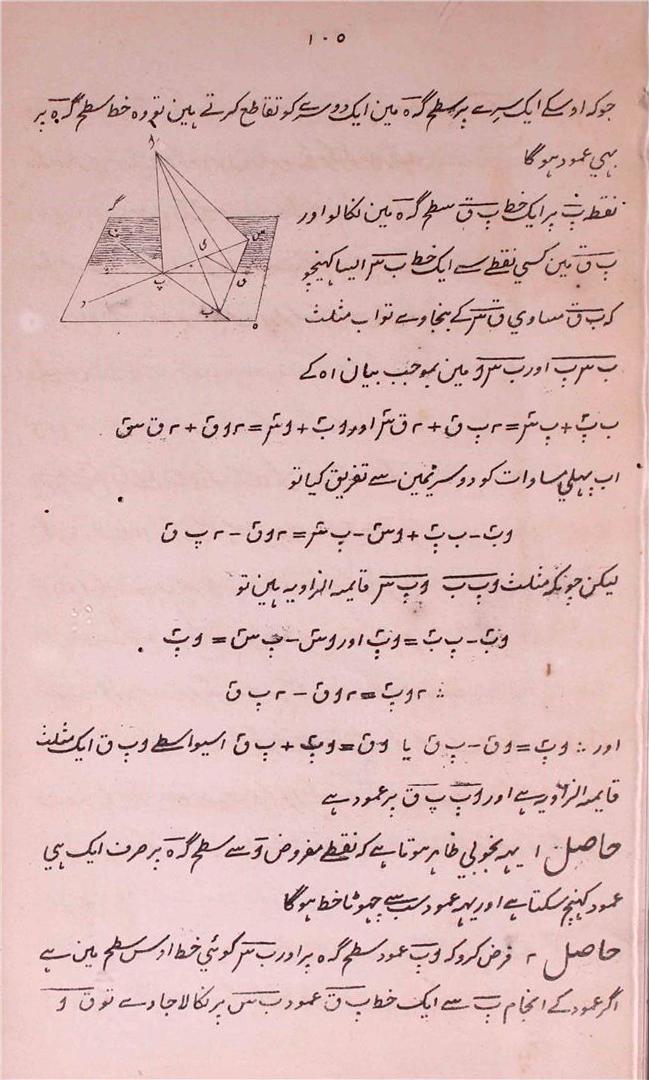 ۱۰۵
جو کہ اوسکے ایک سرے پر سطح گ ہ مین ایک دوسرے کو تقاطع کرتے ہین تو وہ خط سطح گ ہ پر
بہی عمود ہوگا
نقطہ پ پر ایک خط پ ق سطح گ ہ مین نکالو اور
پ ق مین کسی نقطے سے ایک خط ب س ایسا کہینچو
کہ ب ق مساوی ق س کے ہنجاوے تو اب مثلث
ب س پ اور ب س و مین بموجب بیان ا ہ کے
ب پ۲ + پ س۲ = ۲ پ ق۲ + ۲ ق س۲ اور و ب۲ + و س۲ = ۲ و ق۲ + ۲ ق س۲
اب پہلی مساوات کو دوسریمین سے تفریق کیا تو
و ب۲ - ب پ۲ + و س۲ - پ س۲ = ۲ و ق۲ - ۲ پ ق۲
لیکن چونکہ مثلث و پ ب و پ س قایمہ الزاویہ ہین تو
و ب۲ - پ ب۲ = و پ۲ اور و س۲ - پ س۲ = و پ۲
∴ ۲ و پ۲ = ۲ و ق۲ - ۲ پ ق۲
اور ∴ و پ۲ = و ق۲ - پ ق۲ یا و ق۲ = و پ۲ + پ ق۲ اسیواسطے و پ ق ایک مثلث
قایمہ الزاویہ ہے اور و پ پ ق پر عمود ہے
حاصل ۱ یہہ بخوبی ظاہر ہوتا ہے کہ نقطے مفروض و سے سطح گ ہ پر صرف ایک ہی
عمود کہنچ سکتا ہے اور یہہ عمود سب سے چہوٹا خط ہوگا
حاصل ۲ فرض کرو کہ و پ عمود سطح گ ہ پر اور ب س کوئی خط اوس سطح مین ہے
اگر عمود کے انجام پ سے ایک خط پ ق عمود ب س پر نکالا جاوے تو ق و
گ
س
ق
پ
ب
ر
ہ